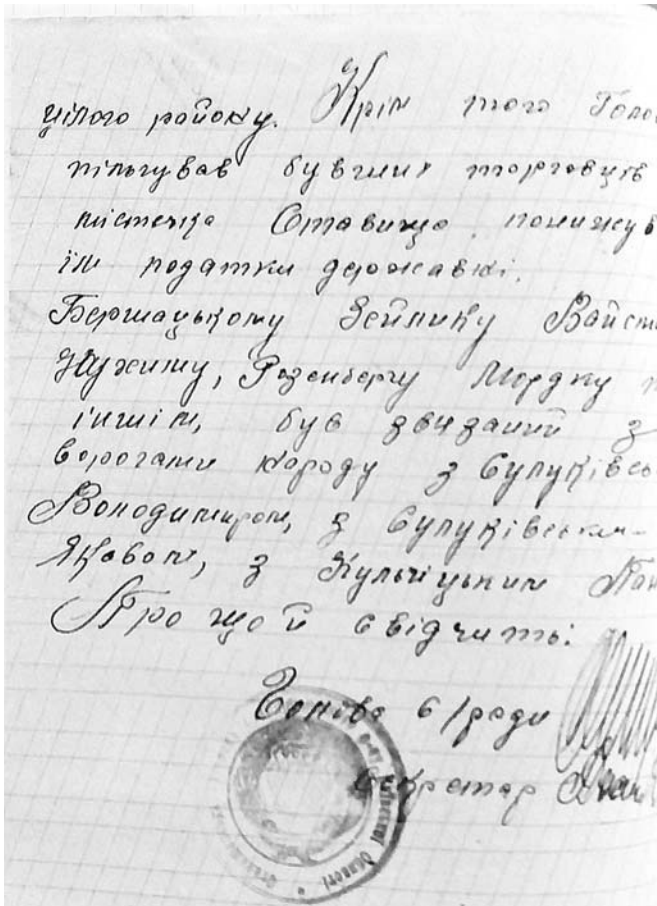 цілого району. Крім того Голо
пільгував бувших торговців
містечка Ставище понижув
їм податки державні.
Бершацькому Зейлику Вайст
Нухиму, Розенбергу Мордку
іншім, був звязаний з
ворогами народу з Сулуківсь
Володимиром, з Сулуківським
Яковом, з Кульчіцьким Пан
Про що й свідчить:
Голова с/ради
Секретар
Області